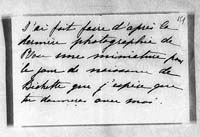 J'ai fait faire d'après la
dernière photographie de
une miniature pour
le jour de naissance de
que j'espère que
tu donneras avec moi.